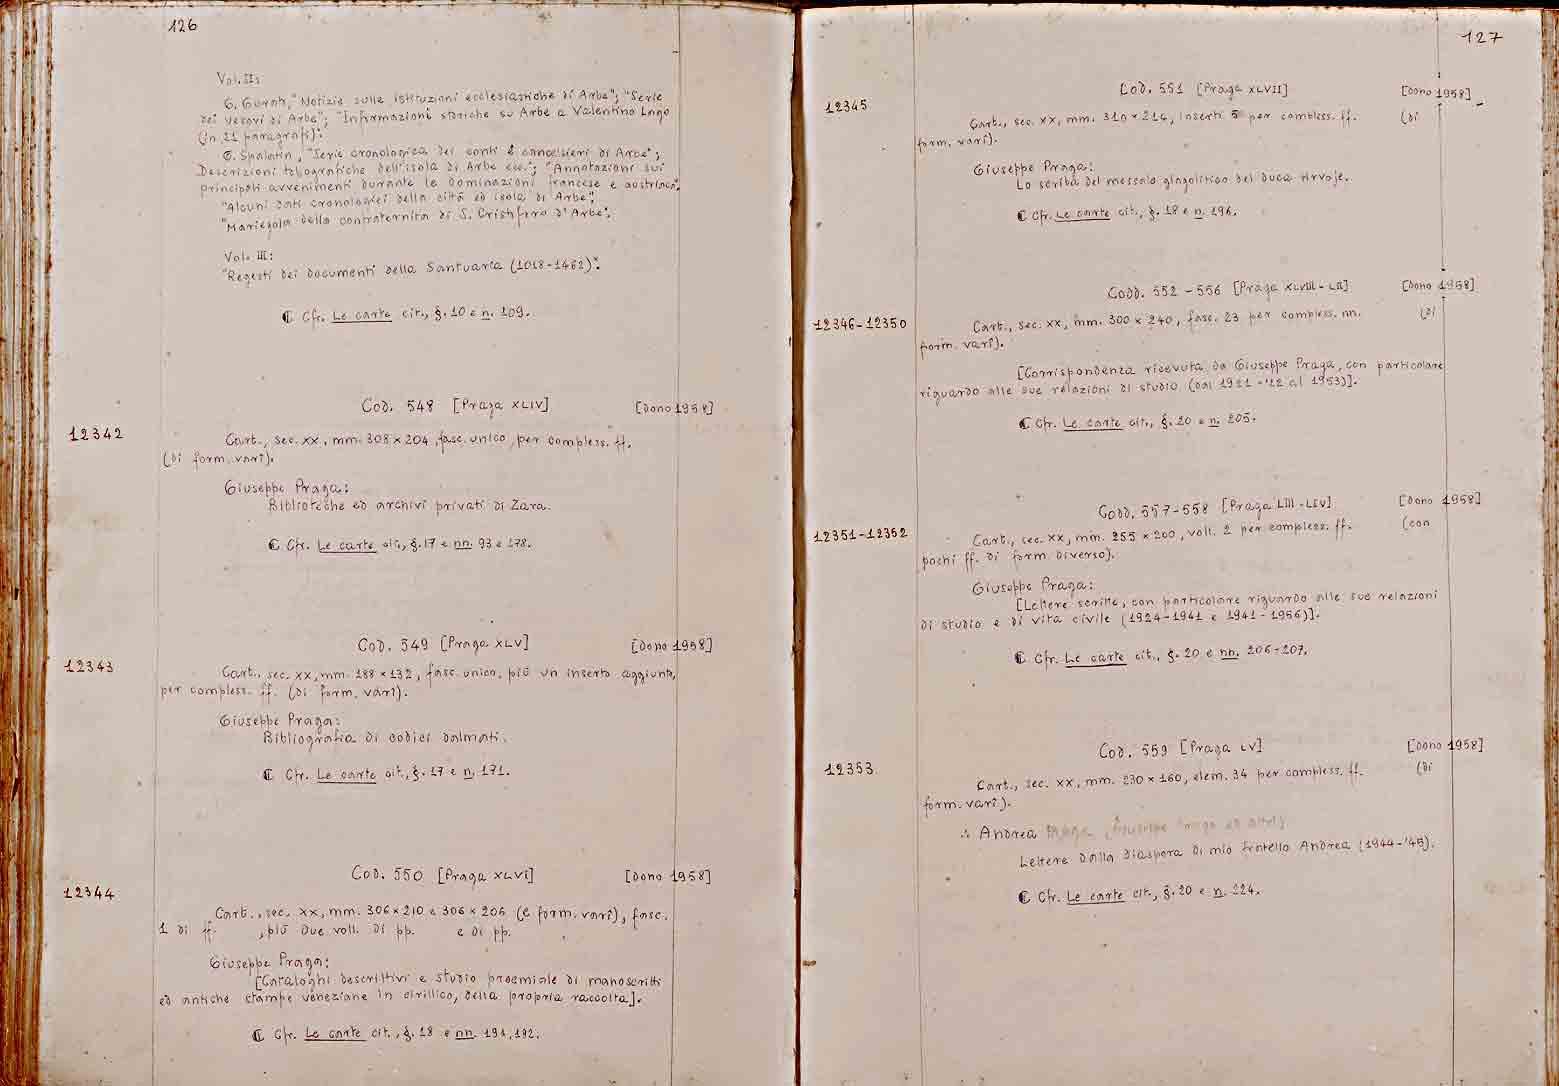 126
Vol. II:
G. Gurati, "Notizie sulle istituzioni ecclesiastiche di Arbe"; "Serie
dei vescovi di Arbe"; "Informazioni storiche su Arbe a Valentino Lago
(in 11 paragrafi):
G. Spalatin, "Serie cronologica dei conti e cancellieri di Arbe";
Descrizioni topografiche dell'isola di Arbe ecc."; "Annotazioni sui
principali avvenimenti durante le dominazioni francese e austriaca";
"Alcuni dati cronologici della città ed isola di Arbe";
"Mariegola della confraternita di S. Cristoforo d'Arbe".
Vol. III:
"Regesti dei documenti della Santuaria (1018-1462)".
Cfr. Le carte cit., §. 10 e n. 109.
Cod. 548 [Praga XLIV] [Dono 1958]
12342
Cart., sec. XX, mm. 308 × 204, fasc. unico, per compless. ff.
(di form. vari).
Giuseppe Praga:
Biblioteche ed archivi privati di Zara.
Cfr. Le carte cit., §. 17 e nn. 93 e 178.
Cod. 549 [Praga XLV] [Dono 1958]
12343
Cart., sec. XX, mm. 188 × 132, fasc. unico, più un inserto aggiunto,
per compless. ff. (di form. vari).
Giuseppe Praga:
Bibliografia di codici dalmati.
Cfr. Le carte cit., §. 17 e n. 171.
Cod. 550 [Praga XLVI] [Dono 1958]
12344
Cart., sec. XX, mm. 306 × 210 e 306 × 206 (e form. vari), fasc.
1 di ff. , più due voll. di pp. e di pp.
Giuseppe Praga:
[Cataloghi descrittivi e studio proemiale di manoscritti
ed antiche stampe veneziane in cirillico, della propria raccolta].
Cfr. Le carte cit., §. 18 e nn. 191, 192.
127
Cod. 551 [Praga XLVII] [Dono 1958]
12345
Cart., sec. XX, mm. 310 × 214, inserti 5 per compless. ff. (di
form. vari).
Giuseppe Praga:
Lo scriba del messale glagolitico del duca Hrvoje.
Cfr. Le carte cit., §. 18 e n. 196.
Codd. 552 - 556 [Praga XLVIII - LII] [Dono 1958]
12346-12350
Cart., sec. XX, mm. 300 × 240, fasc. 23 per compless. nn. (di
form. vari).
[Corrispondenza ricevuta da Giuseppe Praga, con particolare
riguardo alle sue relazioni di studio (dal 1921-'22 al 1953)].
Cfr. Le carte cit., §. 20 e n. 205.
Codd. 557-558 [Praga LIII - LIV] [Dono 1958]
12351-12352
Cart., sec. XX, mm. 255 × 200, voll. 2 per compless. ff. (con
pochi ff. di form. diverso).
Giuseppe Praga:
[Lettere scritte, con particolare riguardo alle sue relazioni
di studio e di vita civile (1924-1941 e 1941-1956)].
Cfr. Le carte cit., §. 20 e nn. 206-207.
Cod. 559 [Praga LV] [Dono 1958]
12353
Cart., sec. XX, mm. 230 × 160, elem. 34 per compless. ff. (di
form. vari).
∴ Andrea Praga (Giuseppe Praga ed altri)
Lettere dalla diaspora di mio fratello Andrea (1944-'45).
Cfr. Le carte cit., §. 20 e n. 224.